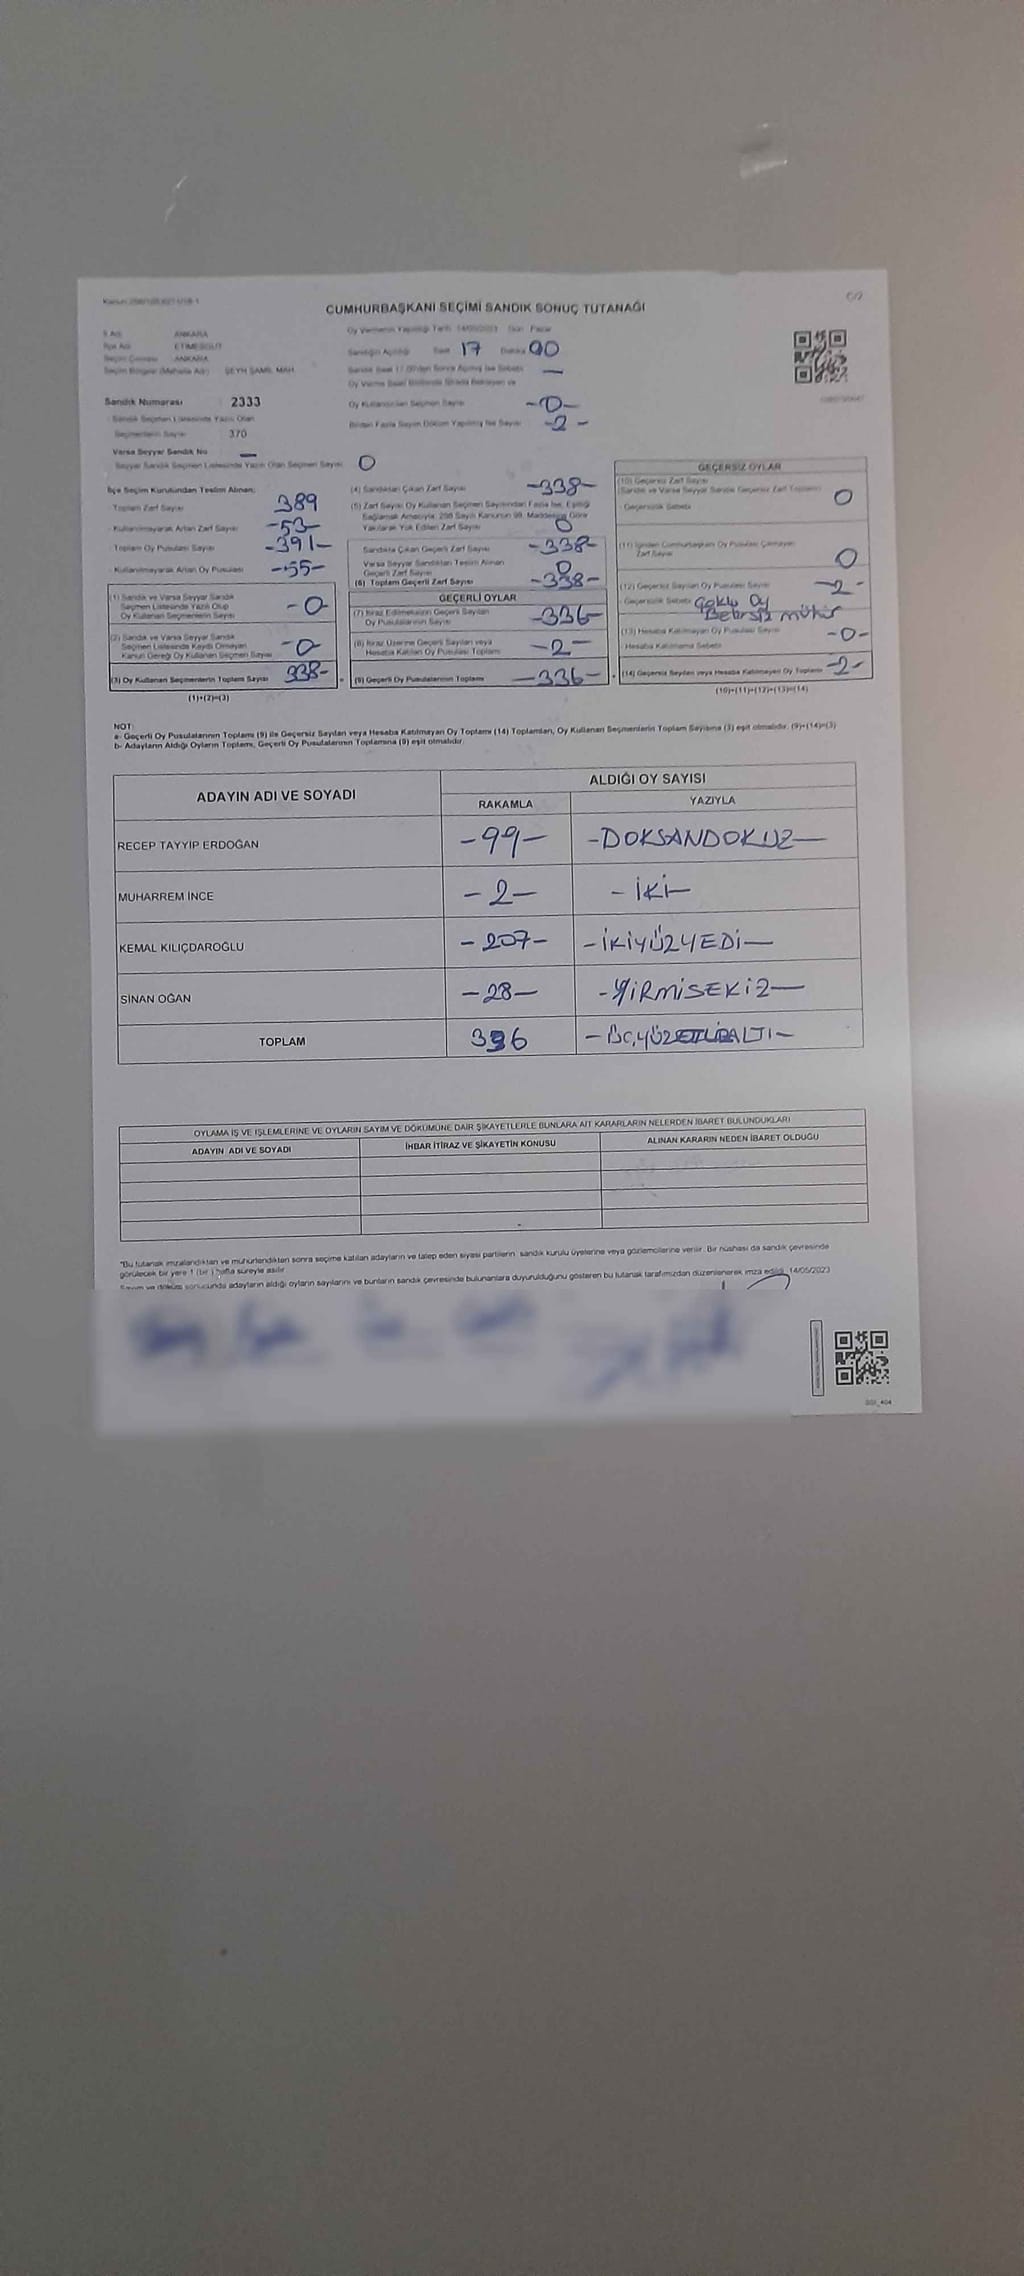 C/2
CUMHURBAŞKANI SEÇİMİ SANDIK SONUÇ TUTANAĞI
İl Adı ANKARA
İlçe Adı ETİMESGUT
Seçim Çevresi ANKARA
Seçim Bölgesi (Mahalle Adı) ŞEYH ŞAMİL MAH.
Sandık Numarası 2333
Sandık Seçmen Listesinde Yazılı Olan
Seçmenlerin Sayısı 370
Varsa Seyyar Sandık No —
Seyyar Sandık Seçmen Listesinde Yazılı Olan Seçmen Sayısı 0
Oy Vermenin Yapıldığı Tarih 14/05/2023 Gün Pazar
Sandığın Açıldığı Saat 17 Dakika 00
Oy Kullandırılan Seçmen Sayısı -0-
Birden Fazla Sayım Döküm Yapılmış İse Sayısı -2-
İlçe Seçim Kurulundan Teslim Alınan;
Toplam Zarf Sayısı 389
Kullanılmayarak Artan Zarf Sayısı -53-
Toplam Oy Pusulası Sayısı -391-
Kullanılmayarak Artan Oy Pusulası -55-
(1) Sandık ve Varsa Seyyar Sandık
Seçmen Listesinde Yazılı Olup
Oy Kullanan Seçmenlerin Sayısı -0-
(2) Sandık ve Varsa Seyyar Sandık
Seçmen Listesinde Kaydı Olmayan
Kanun Gereği Oy Kullanan Seçmen Sayısı -0-
(3) Oy Kullanan Seçmenlerin Toplam Sayısı 338-
(1)+(2)=(3)
(4) Sandıktan Çıkan Zarf Sayısı -338-
(5) Zarf Sayısı Oy Kullanan Seçmen Sayısından Fazla İse, Eşitliği
Sağlamak Amacıyla, 298 Sayılı Kanunun 98. Maddesine Göre
Yakılarak Yok Edilen Zarf Sayısı 0
Sandıkta Çıkan Geçerli Zarf Sayısı -338-
Varsa Seyyar Sandıktan Teslim Alınan
Geçerli Zarf Sayısı 0
(6) Toplam Geçerli Zarf Sayısı -338-
GEÇERLİ OYLAR
(7) İtiraz Edilmeksizin Geçerli Sayılan
Oy Pusulalarının Sayısı -336-
(8) İtiraz Üzerine Geçerli Sayılan veya
Hesaba Katılan Oy Pusulası Toplamı -2-
(9) Geçerli Oy Pusulalarının Toplamı -336-
GEÇERSİZ OYLAR
(10) Geçersiz Zarf Sayısı
(Sandık ve Varsa Seyyar Sandık Geçersiz Zarf Toplamı)
Geçersizlik Sebebi 0
(11) İçinden Cumhurbaşkanı Oy Pusulası Çıkmayan
Zarf Sayısı 0
(12) Geçersiz Sayılan Oy Pusulası Sayısı -2-
Geçersizlik Sebebi Çoklu Oy
Belirsiz mühür
(13) Hesaba Katılmayan Oy Pusulası Sayısı -0-
Hesaba Katılmama Sebebi
(14) Geçersiz Sayılan veya Hesaba Katılmayan Oy Toplamı -2-
(10)+(11)+(12)+(13)=(14)
NOT:
a- Geçerli Oy Pusulalarının Toplamı (9) ile Geçersiz Sayılan veya Hesaba Katılmayan Oy Toplamı (14) Toplamları, Oy Kullanan Seçmenlerin Toplam Sayısına (3) eşit olmalıdır. (9)+(14)=(3)
b- Adayların Aldığı Oyların Toplamı, Geçerli Oy Pusulalarının Toplamına (9) eşit olmalıdır.
ADAYIN ADI VE SOYADI
ALDIĞI OY SAYISI
RAKAMLA YAZIYLA
RECEP TAYYİP ERDOĞAN -99- -DOKSANDOKUZ-
MUHARREM İNCE -2- -İKİ-
KEMAL KILIÇDAROĞLU -207- -İKİYÜZYEDİ-
SİNAN OĞAN -28- -YİRMİSEKİZ-
TOPLAM 336
OYLAMA İŞ VE İŞLEMLERİNE VE OYLARIN SAYIM VE DÖKÜMÜNE DAİR ŞİKAYETLERLE BUNLARA AİT KARARLARIN NELERDEN İBARET BULUNDUKLARI
ADAYIN ADI VE SOYADI İHBAR İTİRAZ VE ŞİKAYETİN KONUSU ALINAN KARARIN NEDEN İBARET OLDUĞU
*Bu tutanak imzalandıktan ve mühürlendikten sonra seçime katılan adayların ve talep eden siyasi partilerin sandık kurulu üyelerine veya gözlemcilerine verilir. Bir nüshası da sandık çevresinde
görülecek bir yere 1 (bir) hafta süreyle asılır.
Sayım ve döküm sonucunda adayların aldığı oyların sayılarını ve bunların sandık çevresinde bulunanlara duyurulduğunu gösteren bu tutanak tarafımızdan düzenlenerek imza edildi. 14/05/2023